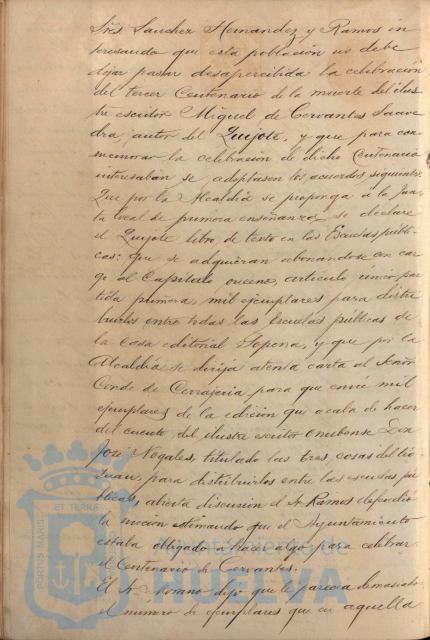 Sres Sanchez Hernandez y Ramos in
teresando que esta población no debe
dejar pasar desapercibida la celebración
del tercer Centenario de la muerte del ilus
tre escritor Miguel de Cervantes Saave
dra, autor del Quijote, y que para con
memorar la celebración de dicho Centenario
interesaban se adoptasen los acuerdos siguientes:
Que por la Alcaldía se proponga a la Jun
ta local de primera enseñanza, se declare
el Quijote libro de texto en las Escuelas públi
cas: que se adquieran abonandose con car
go al Capitulo onceno, articulo cinco par
tida primera, mil ejemplares para distri
buirlos entre todas las Escuelas públicas de
la Casa editorial Sopena, y que por la
Alcaldía se dirija atenta carta al Señor
Conde de Cerrajeria para que envie mil
ejemplares de la edición que acaba de hacer
del cuento, del ilustre escritor Onubense Don
José Nogales, titulado las tres cosas del tio
Juan, para distribuirlos entre las escuelas pú
blicas, abierta discusion el Sr. Ramos defendio
la mocion estimando que el Ayuntamiento
estaba obligado a hacer algo para celebrar
el Centenario de Cervantes.
El Sr. Morano dijo que le parecia demasiado
el numero de ejemplares que en aquella
PORTUS MARIS ET TERRÆ
Ayuntamiento de
HUELVA